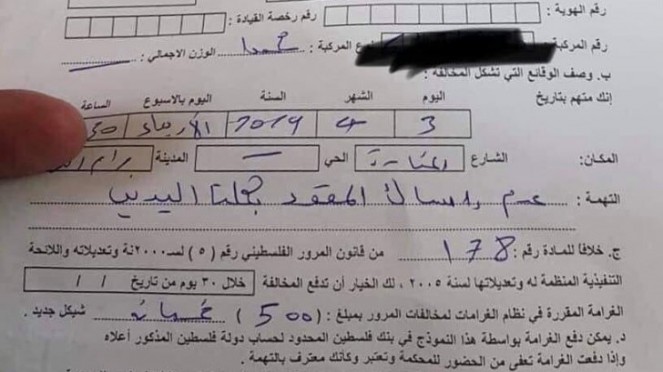 رقم الهوية : رقم رخصة القيادة :
رقم المركبة نوع المركبة : الوزن الاجمالي :
ب. وصف الوقائع التي تشكل المخالفة :
إنك متهم بتاريخ
اليوم الشهر السنة اليوم بالاسبوع الساعة
3 4 2019 الأربعاء
المكان: الشارع الحي — المدينة
التهمة : عدم إمساك المقود بكلتا اليدين
ج. خلافاً للمادة رقم : 178 من قانون المرور الفلسطيني رقم (٥) لسـ٢٠٠٠نة وتعديلاته واللائحة
التنفيذية المنظمة له وتعديلاتها لسنة ٢٠٠٥ ، لك الخيار أن تدفع المخالفة خلال ٣٠ يوم من تاريخ / /
الغرامة المقررة في نظام الغرامات لمخالفات المرور بمبلغ : ( 500 ) خمسمائة شيكل جديد .
د. يمكن دفع الغرامة بواسطة هذا النموذج في بنك فلسطين المحدود لحساب دولة فلسطين المذكور أعلاه
وإذا دفعت الغرامة تعفى من الحضور للمحكمة وتعتبر وكأنك معترف بالتهمة .